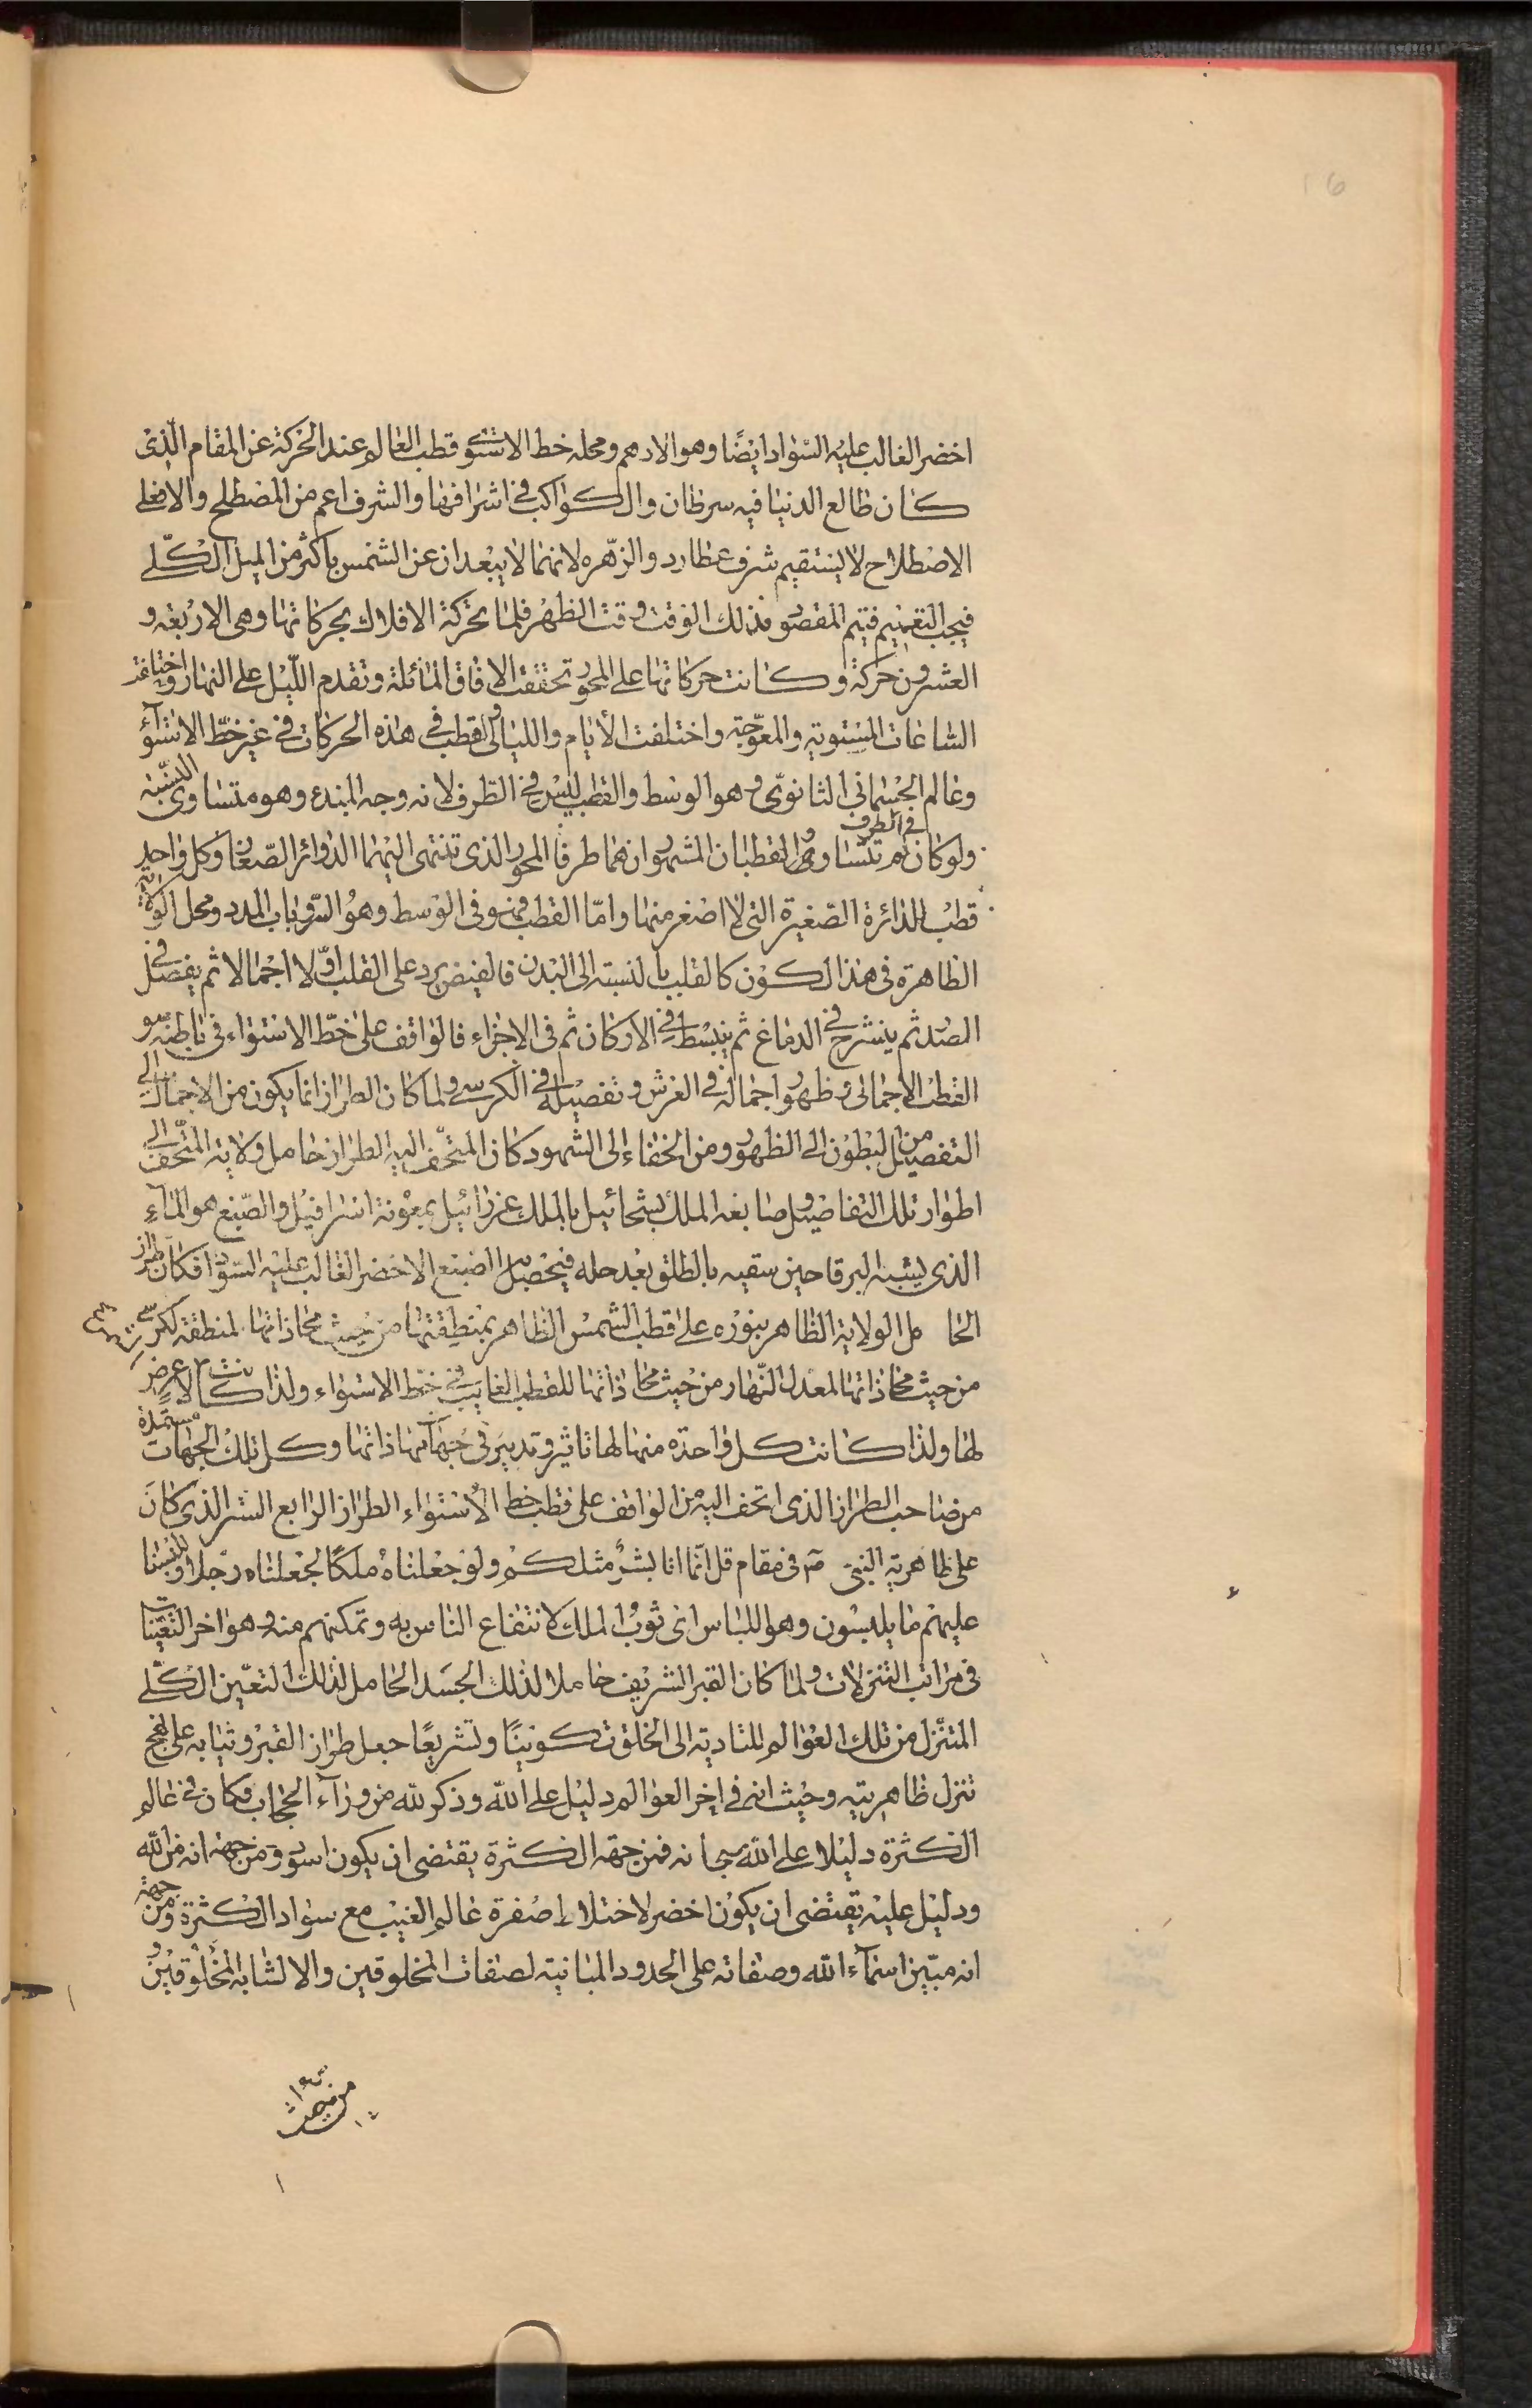 16
اخضر الغالب عليه السواد ايضًا وهو الادهم ومحله خط الاستو قطب العالم عند الحركة عن المقام الّذى
كان طالع الدنيا فيه سرطان والكواكب فى اشرافها والشرف اعم من المصطلح والا فعلى
الاصطلاح لا يستقيم شرف عطارد والزّهره لانهما لا يبعدان عن الشمس باكثر من الميل الكلّى
فيجب التعميم فيتم المقصود فذلك الوقت وقت الظهر فلما تحركة الافلاك بحركاتها وهى الاربعة و
العشرون حركة وكانت حركاتها على المحور تحققت الافاق المائلة وتقدم اللّيل على النهار و
الساعات المستوية والمعوّجة واختلفت الأيام والليالى والقطب فى هذه الحركات فى غير خطّ الاستوآء
وعالم الجسمانى الثانوىّ وهو الوسط والقطب ليس فى الطّرف لانه وجه المبدء وهو متساوى النسبة
ولو كان فى الطرف لم تتساو والقطبان المشهوران هما طرفا المحور الذى تنتهى اليهما الدوائر الصّغار وكل واحد
قطب الدائرة الصّغيرة التى لا اصغر منها وامّا القطب فهو فى الوسط وهو السّر وباب المدد ومحل الولاية
الظاهرة فى هذا الكون كالقلب بالنسبة الى البدن فالفيض يرد على القلب اوّلا اجمالا ثم يفصل فى
الصدر ثم ينشرح فى الدماغ ثم ينبسط فى الاركان ثم فى الاجزاء فالواقف على خطّ الاستواء فى باطنه و
القطب الاجمالى وظهور اجماله فى العرش وتفصيله فى الكرسى ولما كان الطراز انما يكون من الاجمال الى
التفصيل من البطون الى الظهور ومن الخفاء الى الشهود كان المتحّف اليه الطراز حامل ولاية المتحّف الى
اطوار تلك التفاصيل وصابغه الملك شحائيل بالملك عزرائيل بمعونة اسرافيل والصّبغ هو المآء
الذى يشبه البرقا حين سقيه بالطلق بعد حله فيحصل الصبغ الاخضر الغالب عليه السواد فكان طراز
الحامل الولاية الظاهر بنوره على قطب الشمس الظاهر بمنطقتها من حيث محاذاتها لمنطقة الكرسى
من حيث محاذاتها المعدل النّهار من حيث محاذاتها للقطب الغايب فى خطّ الاستواء ولذا كانت لا عرض
لها ولذا كانت كل واحدة منها لها تاثير وتدبير فى جهة محاذاتها وكل تلك الجهات مستمدة
من صاحب الطراز الذى اتحف اليه من الواقف على قطب خط الأستواء الطراز الرابع الستر الذى كان
على ظاهرية النبى صم فى مقام قل انّما انا بشرٌ مثلكم ولو جعلناه ملكًا لجعلناه رجلا وللبسنا
عليهم ما يلبسون وهو اللباس اى ثوب الملك لانتفاع الناس به وتمكنهم منه وهو اخر التعيّنات
فى مراتب التنزلات ولما كان القبر الشريف حاملا لذلك الجسد الحامل لذلك التعيّن الكلّى
المتنزّل من تلك العوالم للتادية الى الخلق تكوينًا وتشريعًا جعل طراز القبر وثيابه على نهج
تنزل ظاهريته وحيث انه فى اخر العوالم دليل على الله وذكر لله من ورآء الحجاب فكان فى عالم
الكثرة دليلا على الله سبحانه فمن جهة الكثرة يقتضى ان يكون اسود ومن جهة انه من الله
ودليل عليه يقتضى ان يكون اخضر لاختلاط صفرة عالم الغيب مع سواد الكثرة ومن جهة
انه مبيّن اسمآء الله وصفاته على الحدود المباينة لصفات المخلوقين والا لشابه المخلوقين و
من جهة